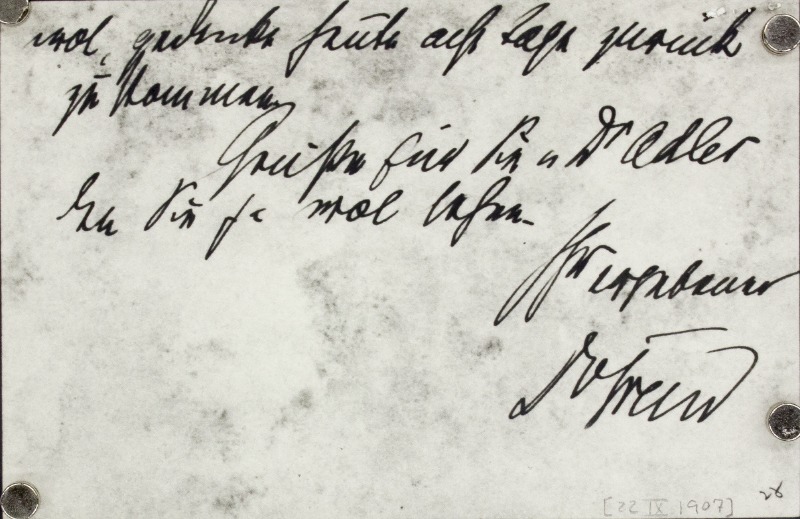 wol, gedenke heute acht Tage zurück
zu kommen.
Grüße für Sie u Dr Adler
den Sie ja wol sehen.
Ihr ergebener
Dr Freud
[22 IX 1907]
28